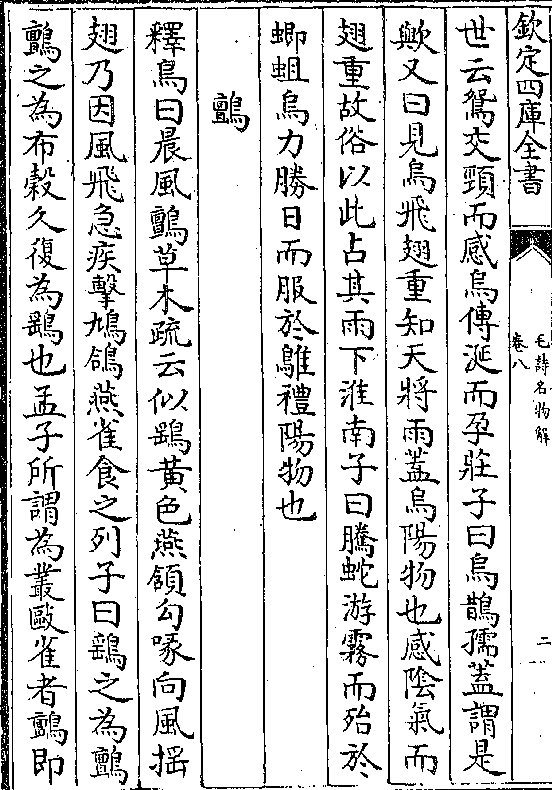 欽定四庫全書
毛詩名物解
卷八
二
世云鴛交頸而感烏傳涎而孕莊子曰烏鵲孺蓋謂是
歟又曰見烏飛翅重知天將雨蓋烏陽物也感陰氣而
翅重故俗以此占其雨下淮南子曰騰蛇游霧而殆於
蝍蛆烏力勝日而服於鵻禮陽物也
鸇
釋鳥曰晨風鸇草木疏云似鷂黃色燕頷勾喙向風揺
翅乃因風飛急疾擊鳩鴿燕雀食之列子曰鷂之為鸇
鸇之為布榖久復為鷂也孟子所謂為叢敺雀者鸇即